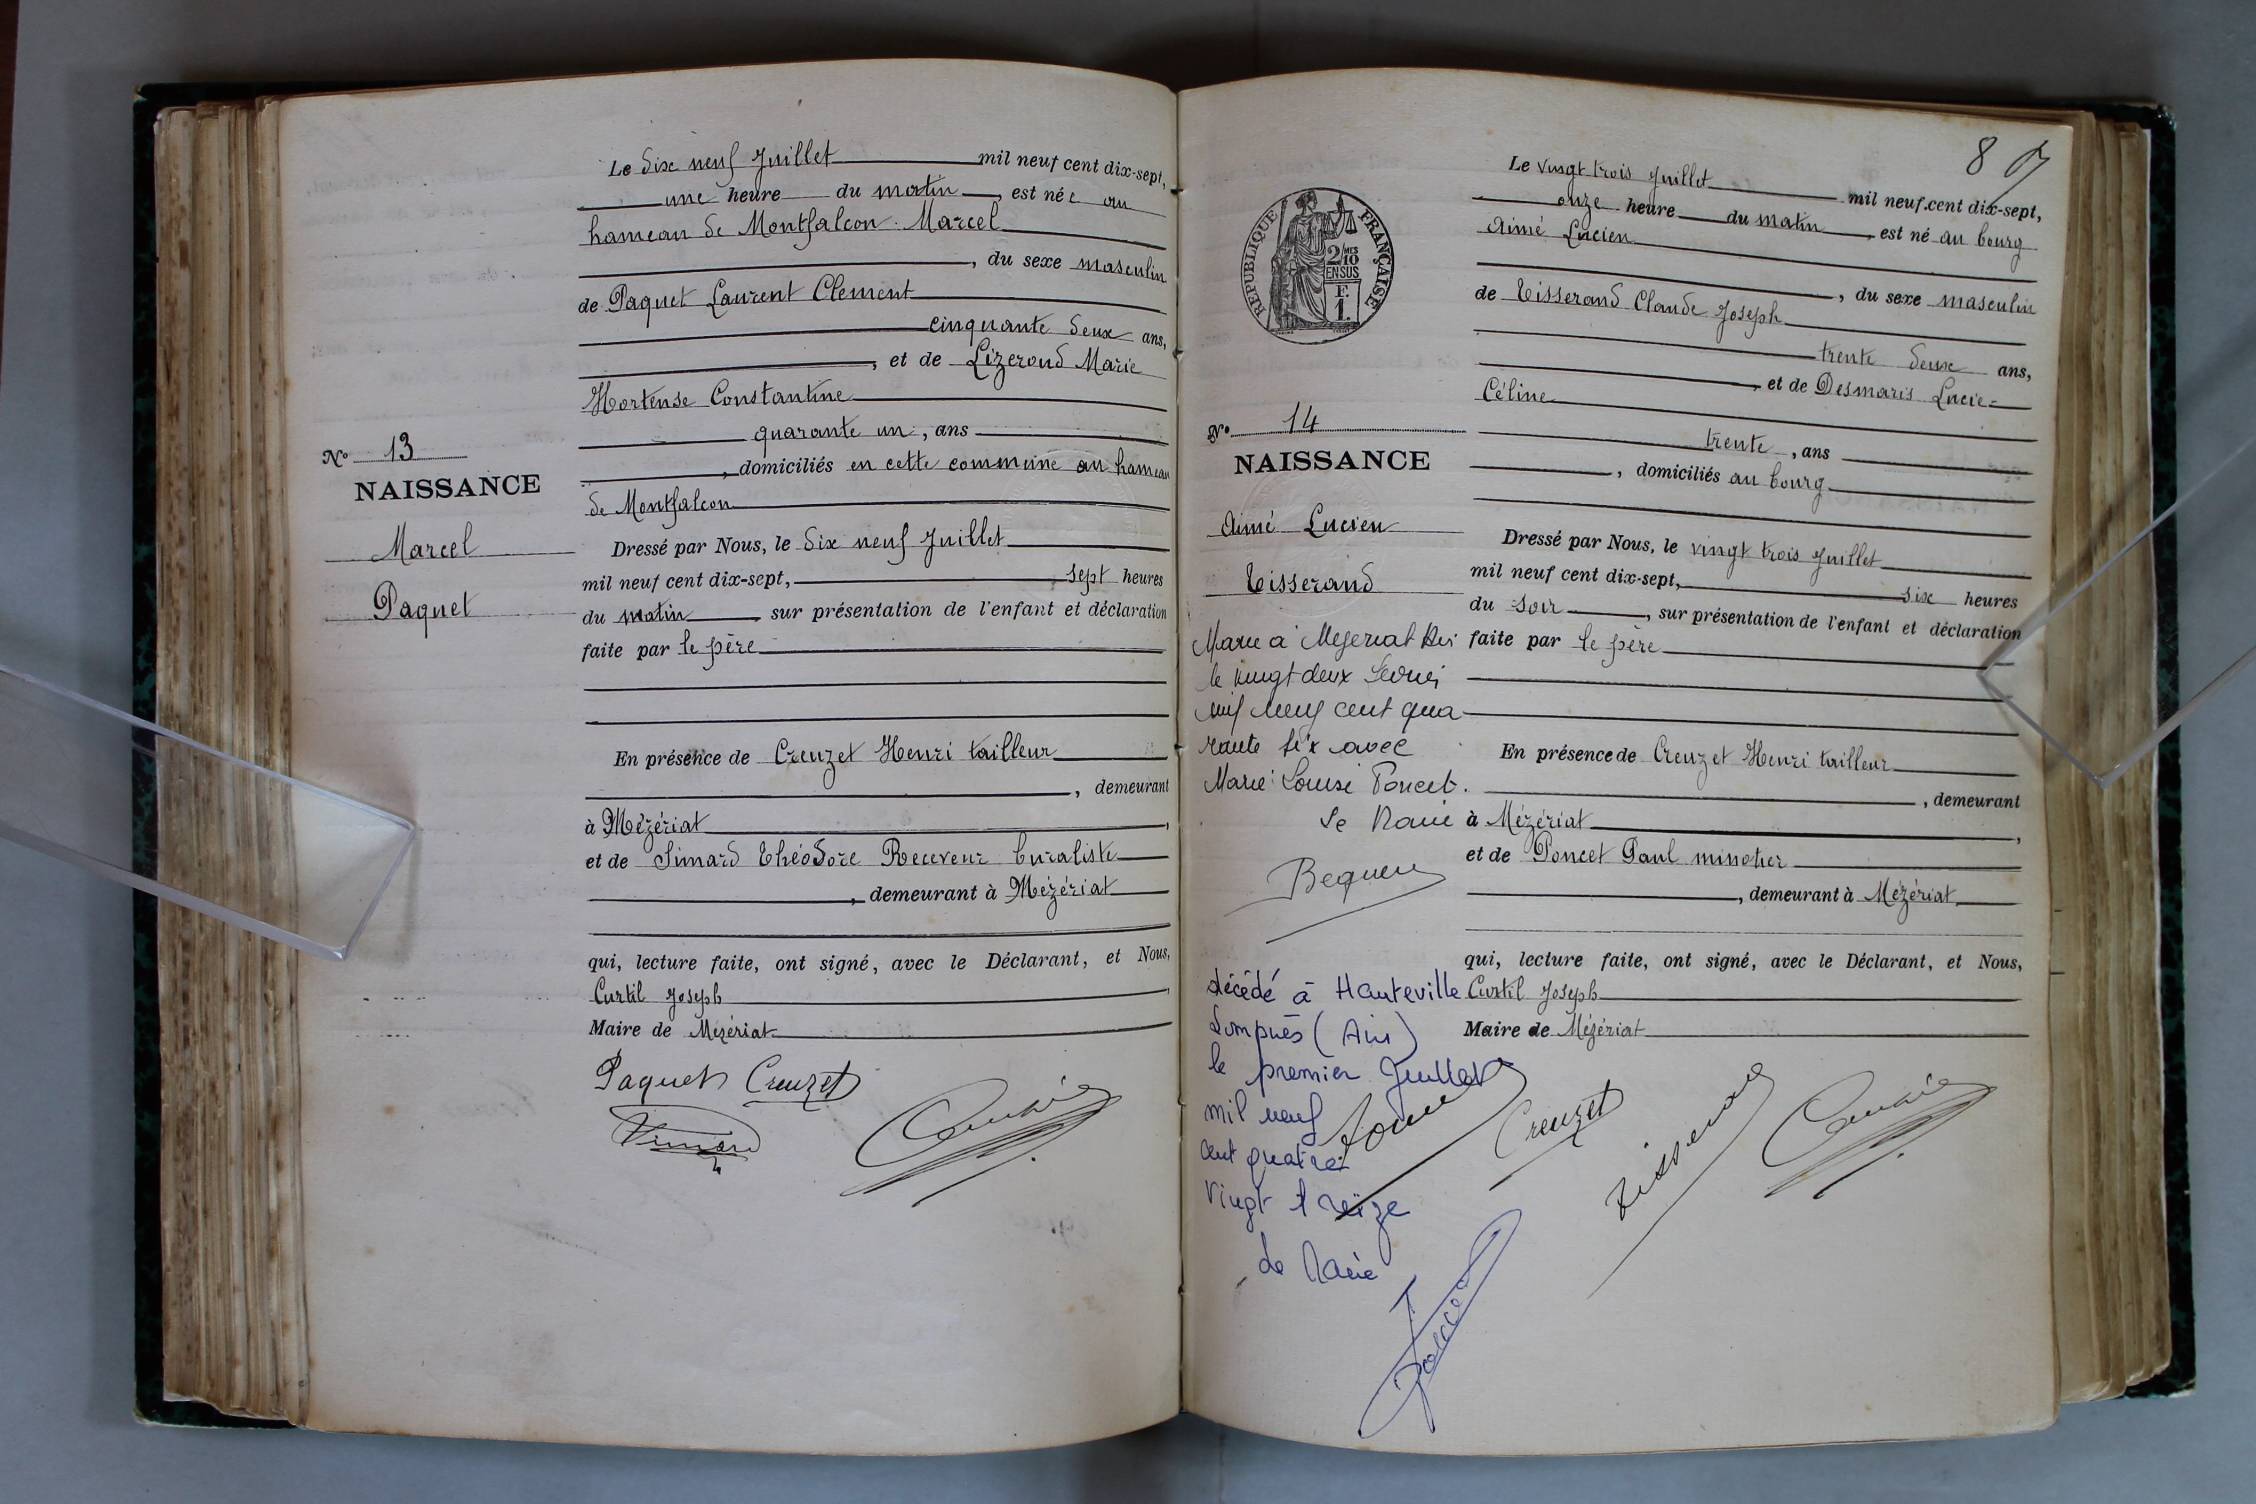 Le dix neuf Juillet mil neuf cent dix-sept,
une heure du matin, est né au
hameau de Montfalcon Marcel
, du sexe masculin
de Paquet Laurent Clement
cinquante deux ans,
, et de Lizerond Marie
Hortense Constantine
quarante un, ans
, domiciliés en cette commune au hameau
de Montfalcon
Nº 13
NAISSANCE
Marcel
Paquet
Dressé par Nous, le dix neuf Juillet
mil neuf cent dix-sept, sept heures
du matin, sur présentation de l'enfant et déclaration
faite par le père
En présence de Creuzet Henri tailleur
, demeurant
à Mézériat,
et de Simard Théodore Receveur buraliste
, demeurant à Mézériat
qui, lecture faite, ont signé, avec le Déclarant, et Nous,
Curtil Joseph,
Maire de Mézériat
Paquet Creuzet
8
REPUBLIQUE FRANÇAISE
2 MES
10
EN SUS
F.
1.
Le vingt trois Juillet mil neuf cent dix-sept,
onze heure du matin, est né au bourg
Aimé Lucien
, du sexe masculin
de Tisserand Claude Joseph
trente deux ans,
, et de Desmaris Lucie-
Céline
trente, ans
, domiciliés au bourg
Nº 14
NAISSANCE
Aimé Lucien
Tisserand
Dressé par Nous, le vingt trois Juillet
mil neuf cent dix-sept, six heures
du soir, sur présentation de l'enfant et déclaration
faite par le père
En présence de Creuzet Henri tailleur
, demeurant
à Mézériat,
et de Poncet Paul minotier
, demeurant à Mézériat
qui, lecture faite, ont signé, avec le Déclarant, et Nous,
Curtil Joseph
Maire de Mézériat
Marié à Mézériat
le vingt deux
mil neuf cent qua
rante six avec
Marie Louise Poncet.
Le Maire
décédé à Hauteville
Lompnès (Ain)
le premier Juillet
mil neuf
cent quatre
vingt treize
Le Maire
Creuzet
Tisserand